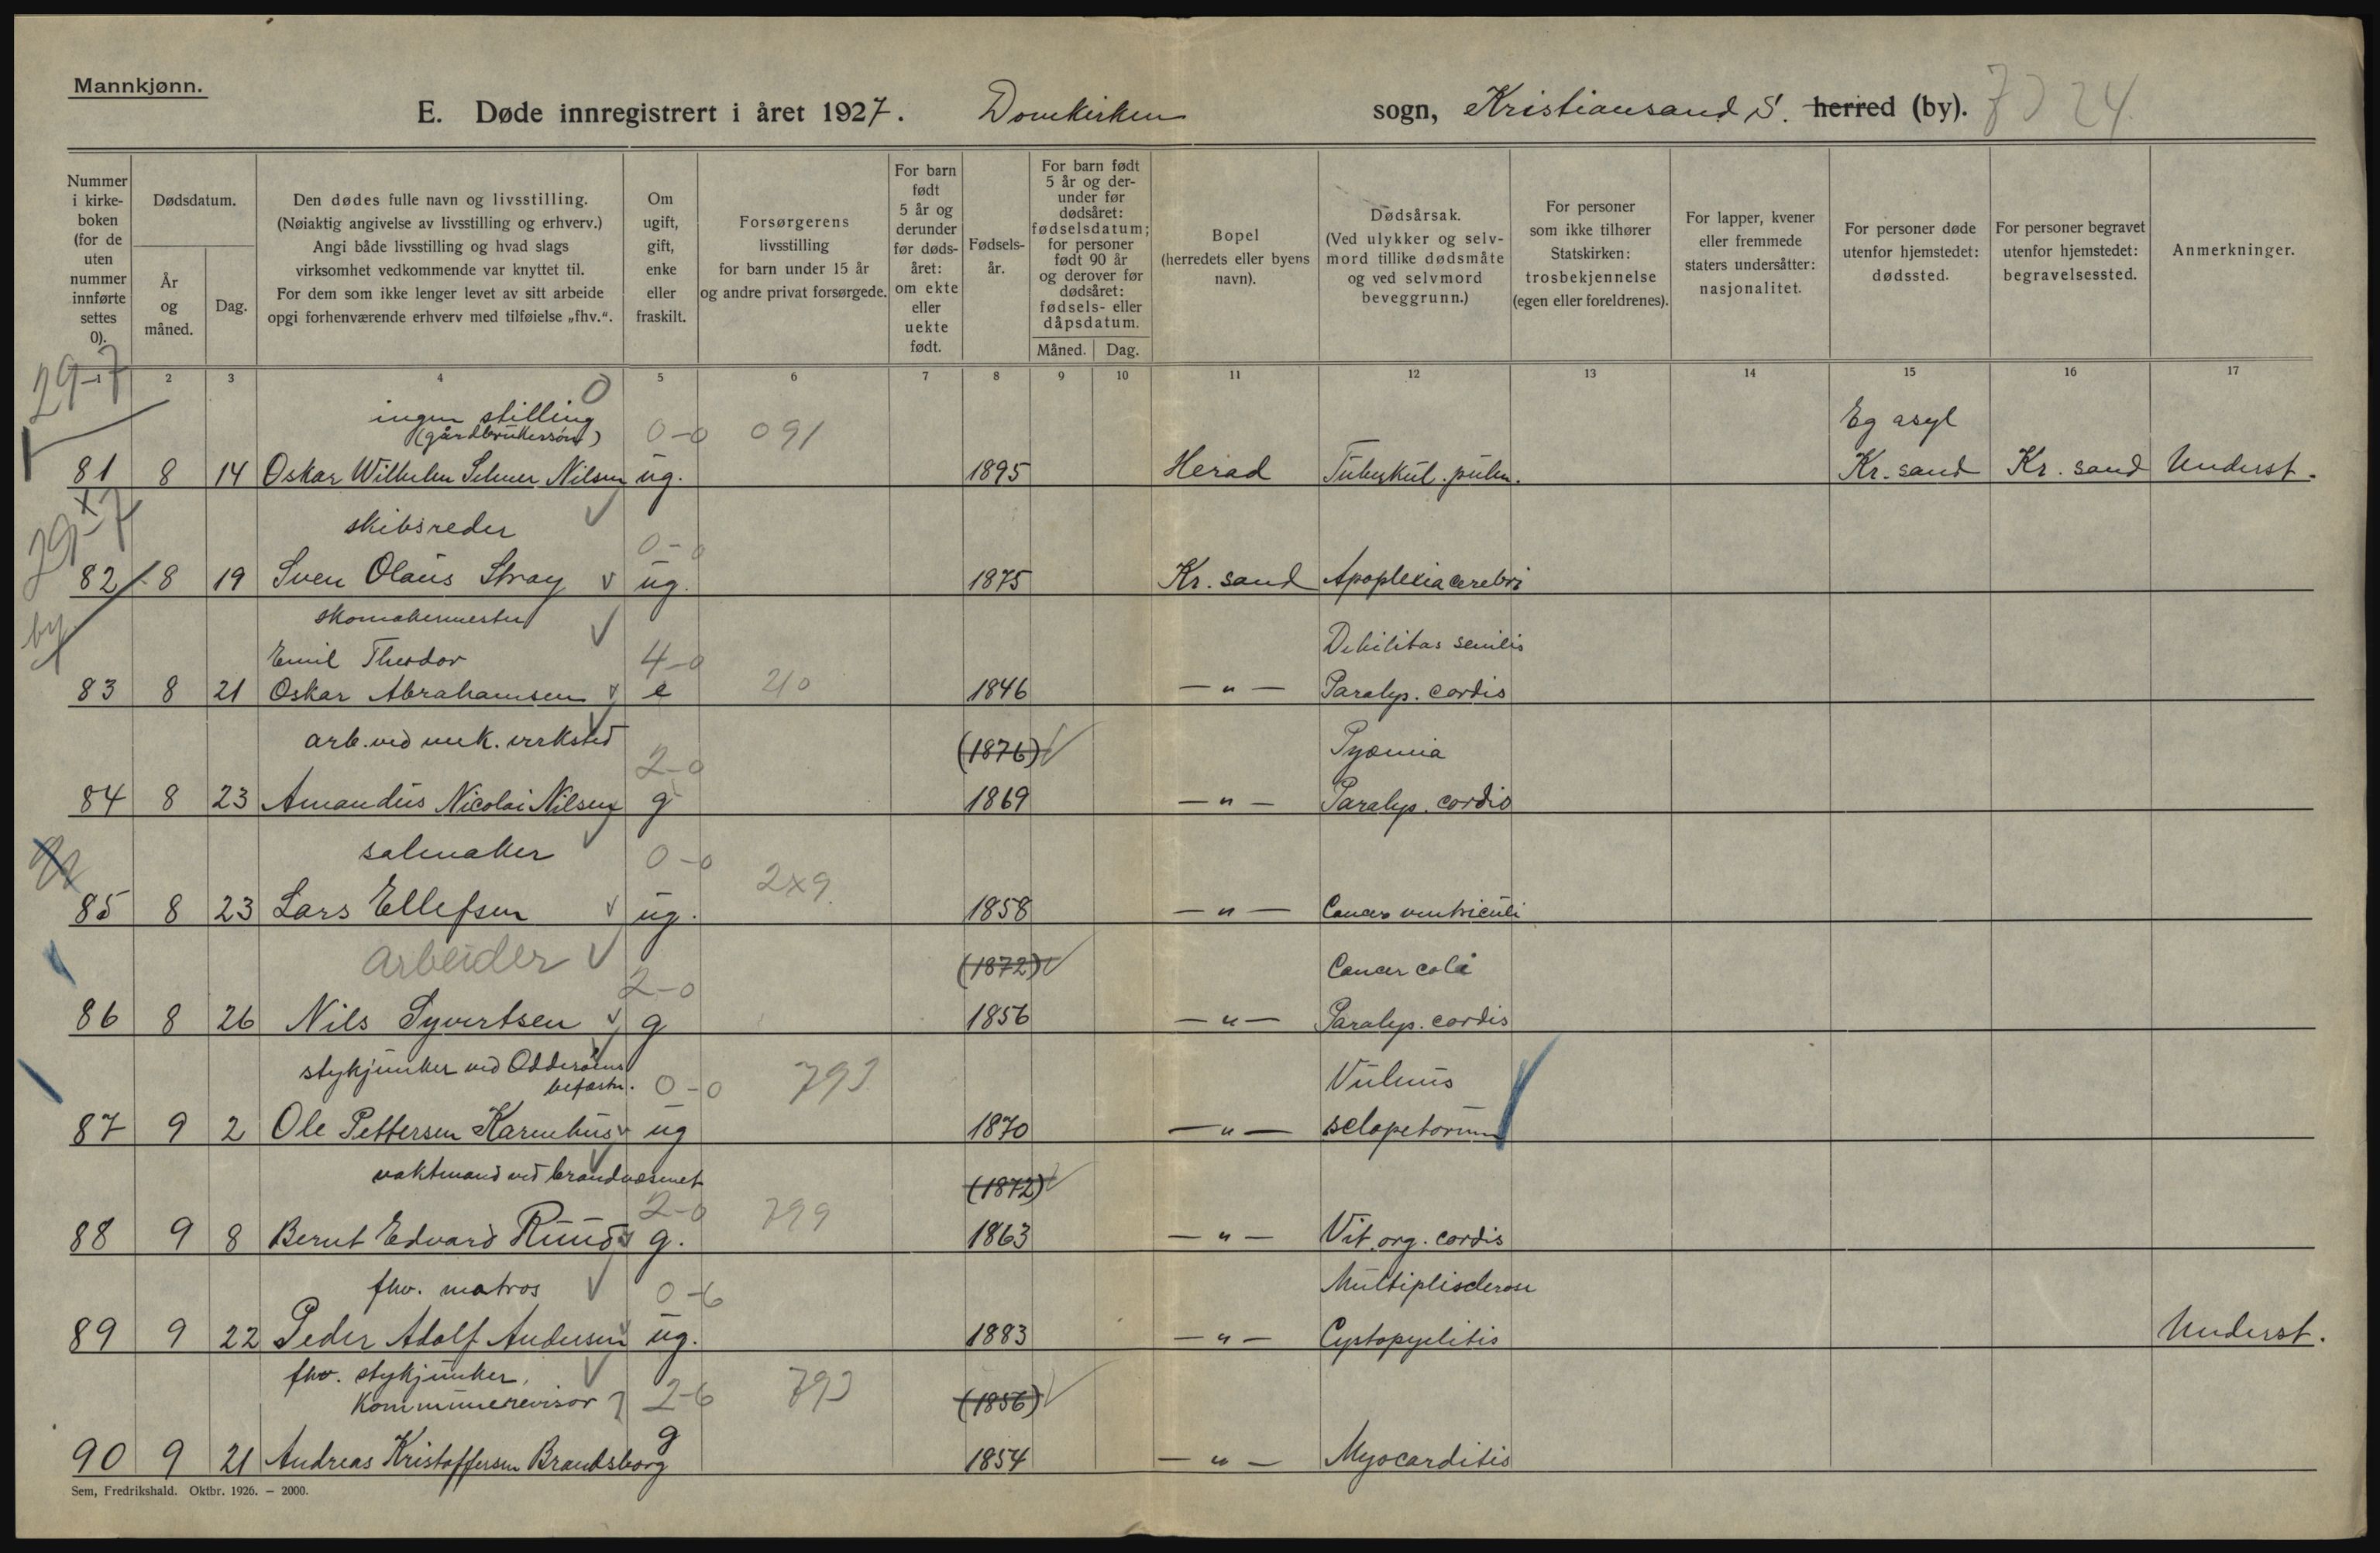 Mannkjønn.
E. Døde innregistrert i året 1927. Domkirken sogn, Kristiansand S. herred (by). 7) 24.
Nummer i kirke-boken (for de uten nummer innførte settes 0).
Dødsdatum.
År og måned.
Dag.
Den dødes fulle navn og livsstilling.
(Nøiaktig angivelse av livsstilling og erhverv.)
Angi både livsstilling og hvad slags
virksomhet vedkommende var knyttet til.
For dem som ikke lenger levet av sitt arbeide
opgi forhenværende erhverv med tilføielse „fhv.“.
Om ugift, gift, enke eller fraskilt.
Forsørgerens livsstilling for barn under 15 år og andre privat forsørgede.
For barn født 5 år og derunder før døds-året: om ekte eller uekte født.
Fødsels-år.
For barn født 5 år og der-under før dødsåret: fødselsdatum; for personer født 90 år og derover før dødsåret: fødsels- eller dåpsdatum.
Måned. Dag.
Bopel (herredets eller byens navn).
Dødsårsak. (Ved ulykker og selv-mord tillike dødsmåte og ved selvmord beveggrunn.)
For personer som ikke tilhører Statskirken: trosbekjennelse (egen eller foreldrenes).
For lapper, kvener eller fremmede staters undersåtter: nasjonalitet.
For personer døde utenfor hjemstedet: dødssted.
For personer begravet utenfor hjemstedet: begravelsessted.
Anmerkninger.
1 2 3 4 5 6 7 8 9 10 11 12 13 14 15 16 17
29-7
ingen stilling 0 Eg asyl
(gårdbrukersøn) 0-0 091
81 8 14 Oskar Wilhelm Selmer Nilsen ug. 1895 Herad Tuberkul. pulm. Kr. sand Kr. sand Underst.
29-7
skibsreder 0-0
82 8 19 Sven Olaus Stray ug. 1875 Kr. sand Apoplexia cerebri
by
skomakermester
Emil Theodor 4-0 Debilitas senilis
83 8 21 Oskar Abrahamsen e 210 1846 —"— Paralys. cordis
arb. ved mek. verksted 2-0 (1876) Pyæmia
84 8 23 Amandus Nicolai Nilsen g 1869 —"— Paralys. cordis
salmaker 0-0 2x9
85 8 23 Lars Ellefsen ug. 1858 —"— Cancer ventriculi
arbeider 2-0 (1872) Cancer coli
86 8 26 Nils Syvertsen g 1856 —"— Paralys. cordis
stykjunker ved Odderøens
befæstn. 0-0 793 Vulnus
87 9 2 Ole Pettersen Karenhus ug 1870 —"— sclopetorium
vaktmand ved brandvæsenet 2-0 799 (1872)
88 9 8 Bernt Edvard Ruud g. 1863 —"— Vit. org. cordis
fhv. matros 0-6 Multiplisclerose
89 9 22 Peder Adolf Andersen ug. 1883 —"— Cystopyelitis Underst.
fhv. stykjunker,
kommunerevisor 2-6 793 (1856)
90 9 21 Andreas Kristoffersen Brandsborg g 1854 —"— Myocarditis
Sem, Fredrikshald. Oktbr. 1926. – 2000.